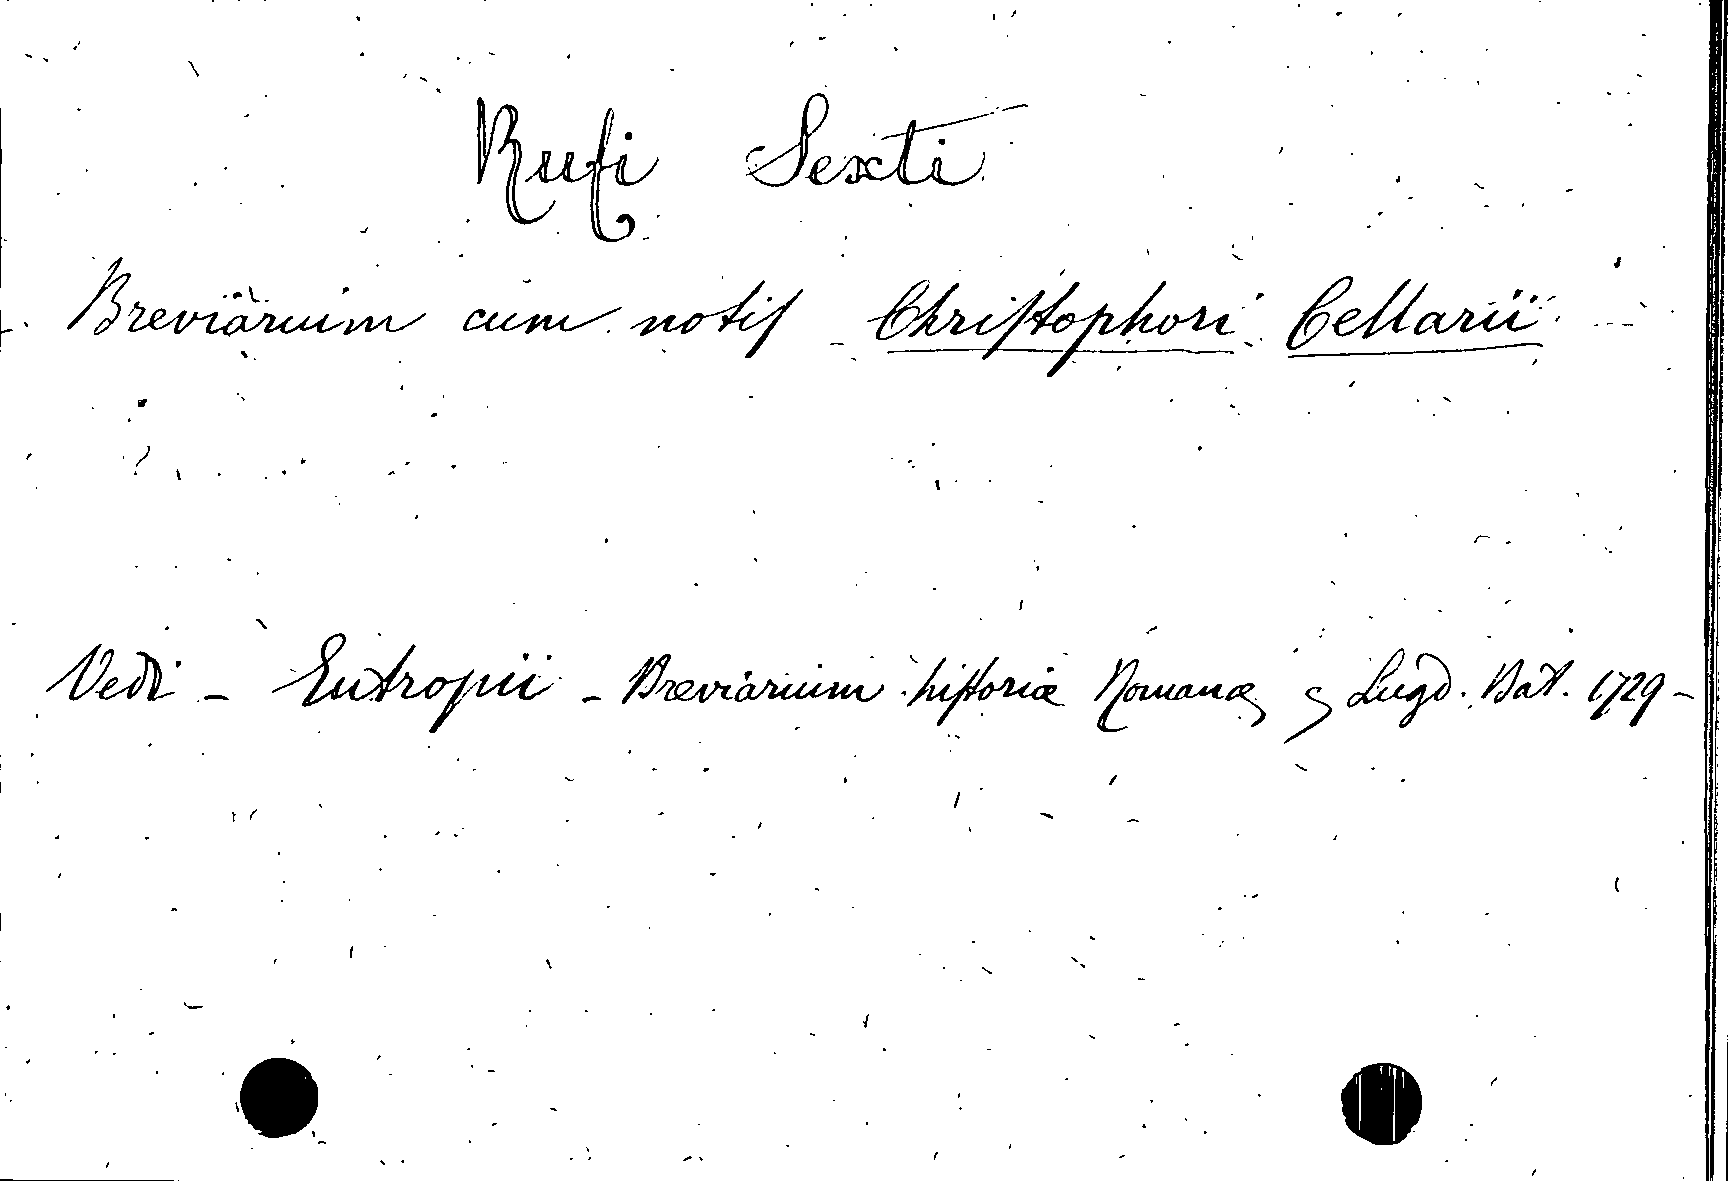 Rufi Sexti
Breviarium cum notiſ Chriſtophori Cellarii
Vedi - Eutropii - Breviarium hiſtoriæ Romanæ Lugd. Bat. 1729 -